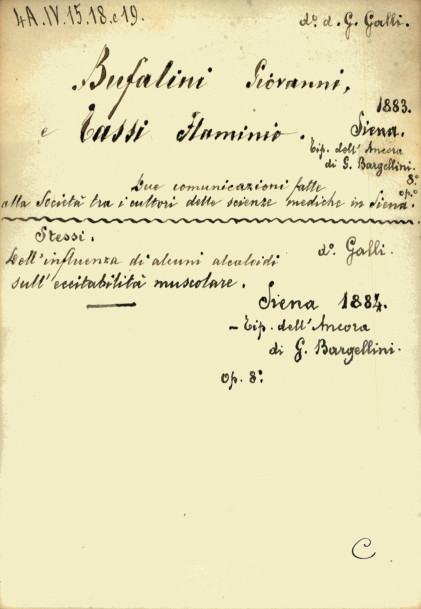 4A.IV.15.18.e 19.
dº. d. G. Galli.
Bufalini Giovanni,
1883.
e Tassi Flaminio.
Siena.
Tip. dell'Ancora
di G. Bargellini.
8.º
op.º
Due comunicazioni fatte
alla Società tra i cultori delle scienze mediche in Siena.
Stessi.
dº. Galli.
Dell'influenza di alcuni alcaloidi
sull'eccitabilità muscolare.
Siena 1884.
- Tip. dell'Ancora
di G. Bargellini.
op. 8.º
C